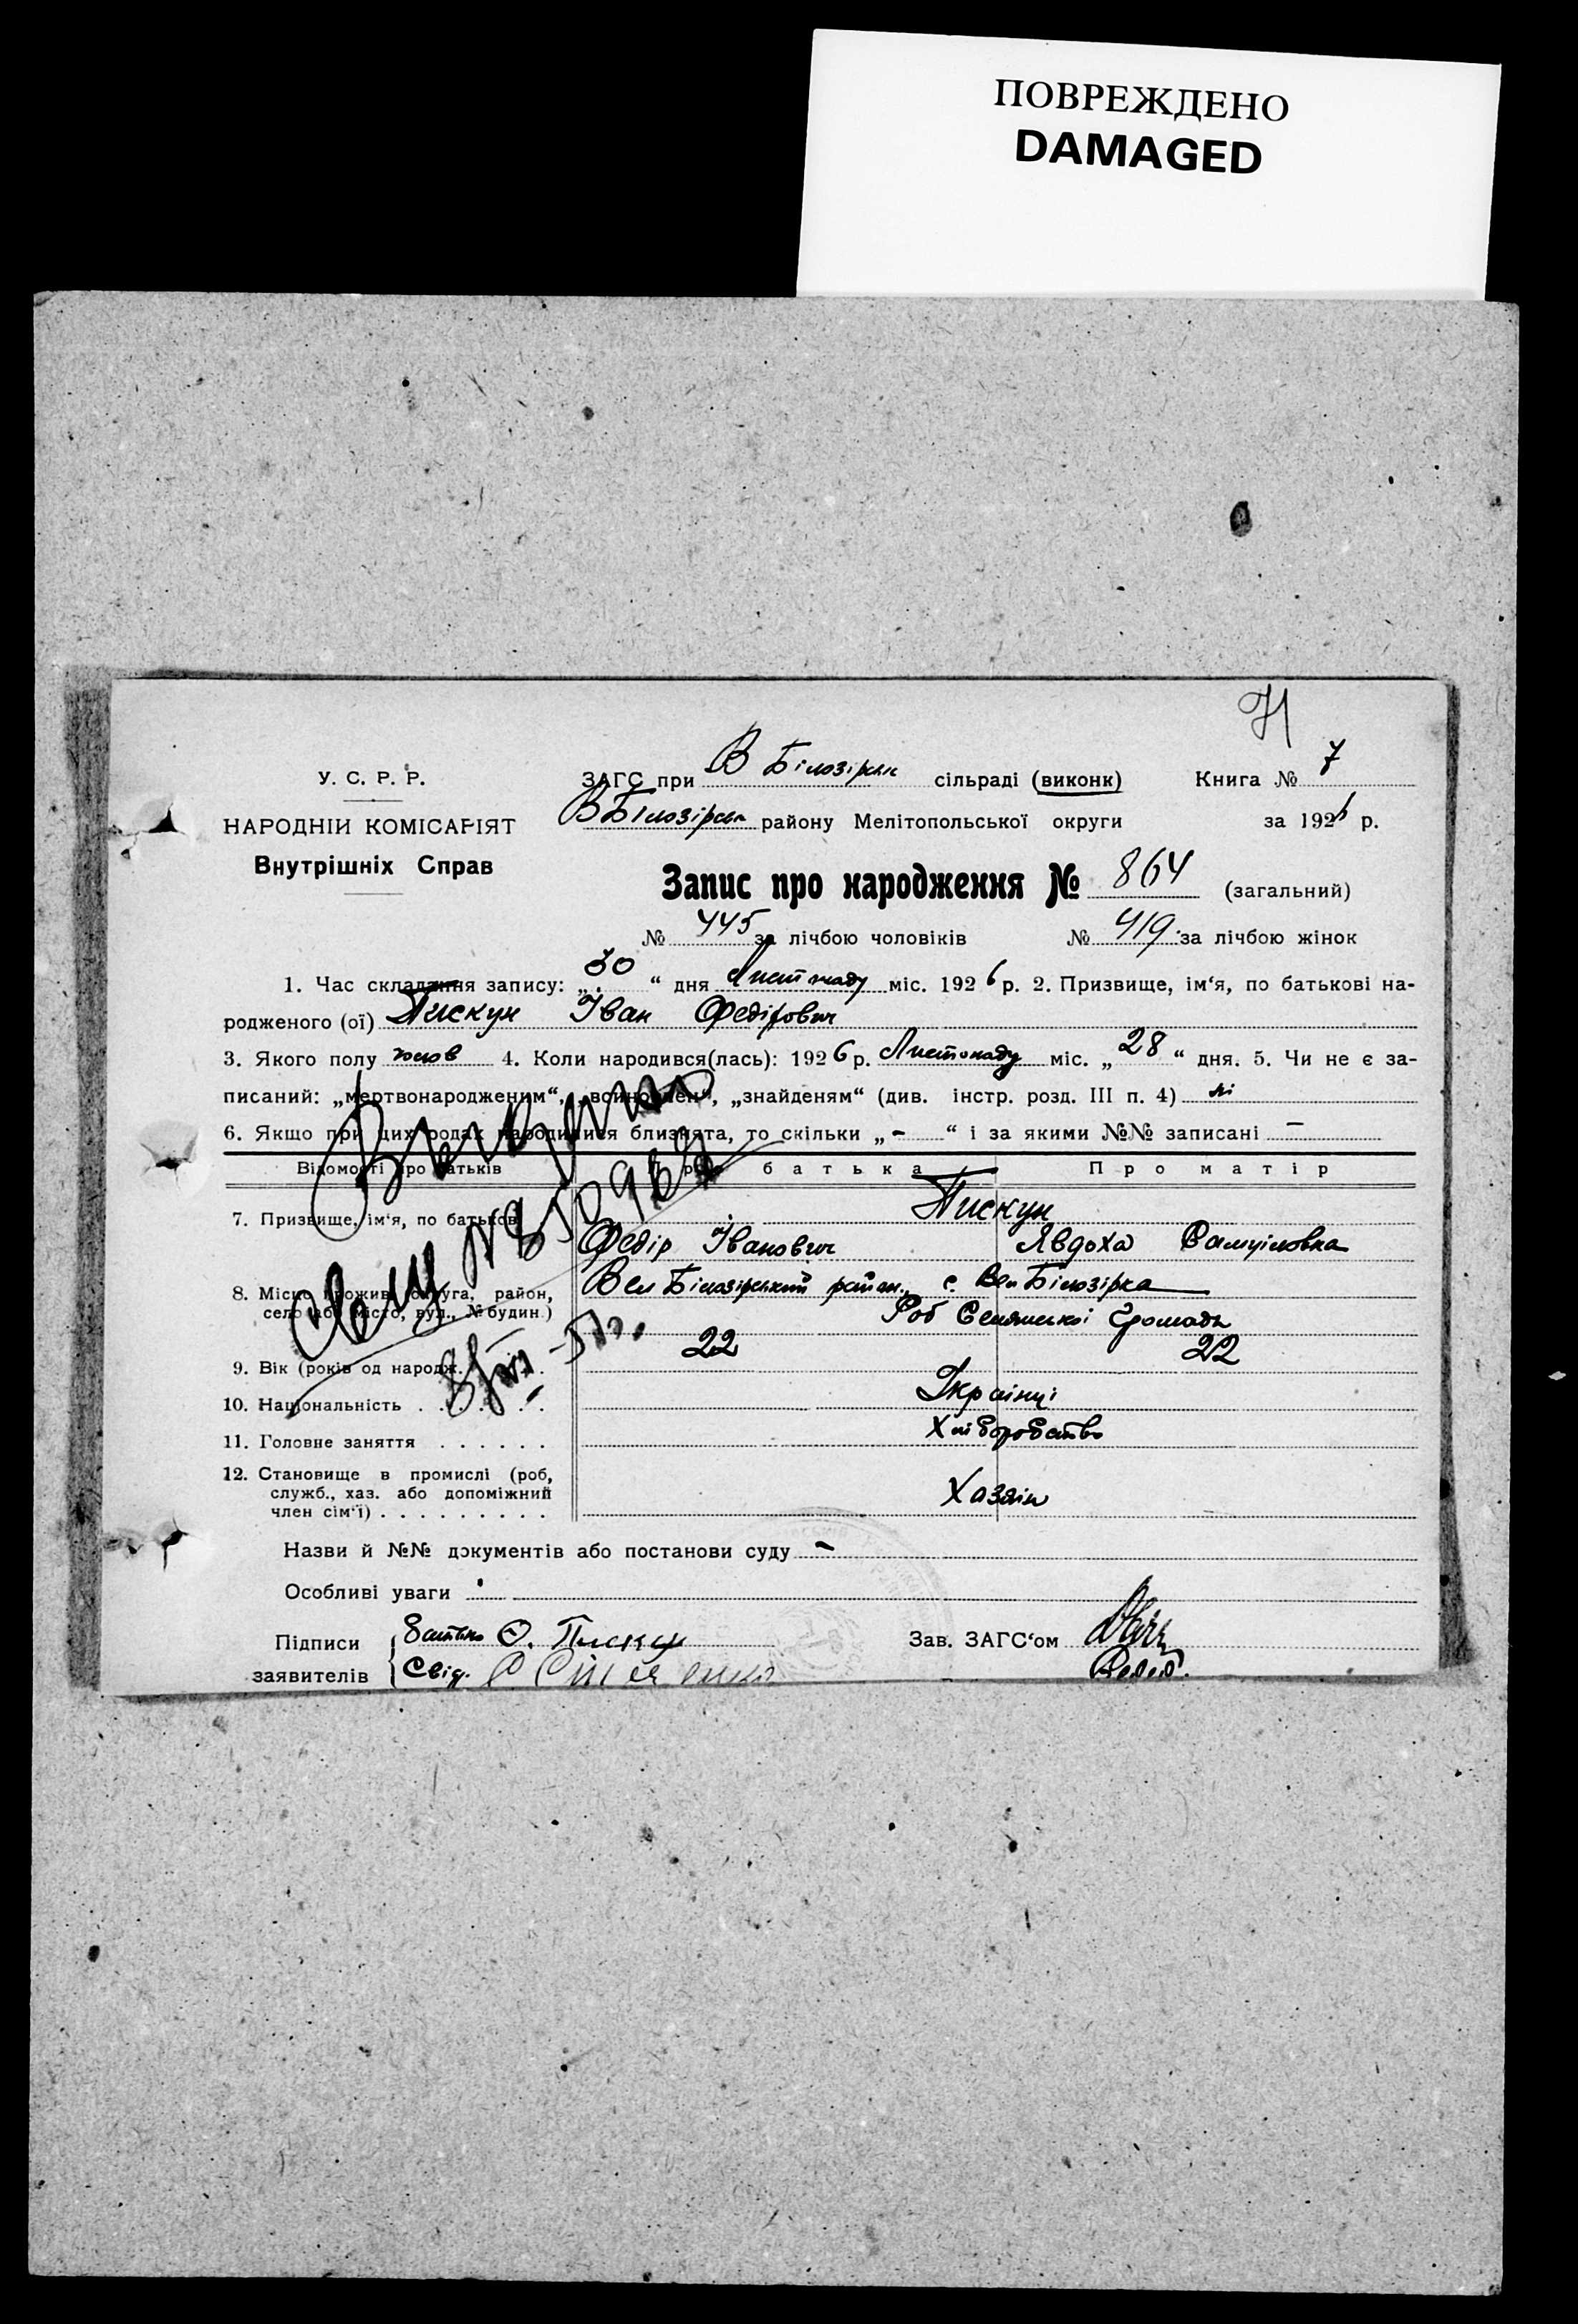 ПОВРЕЖДЕНО
DAMAGED
У. С. Р. Р.
НАРОДНІЙ КОМІСАРІЯТ
Внутрішніх Справ
ЗАГС при В Білозірськ сільраді (виконк) Книга № 7
В Білозірськ району Мелітопольської округи за 1926 р.
Запис про народження № 864 (загальний)
№ 445 за лічбою чоловіків № 419 за лічбою жінок
1. Час складання запису: „30“ дня Листопаду міс. 1926 р. 2. Призвище, ім‘я, по батькові на-
родженого (ої) Пискун Іван Федірович
3. Якого полу чолов 4. Коли народився(лась): 1926 р. Листопаду міс. „28“ дня. 5. Чи не є за-
писаний: „мертвонародженим“, „знайденям“ (див. інстр. розд. III п. 4) ні
6. Якщо при цих родах народилися близнята, то скільки „-“ і за якими №№ записані -
Відомості про батьків Про батька Про матір
7. Призвище, ім‘я, по батькові Пискун
Федір Іванович Явдоха Самуіловна
8. Місце прожив. (округа, район, село або місто, вул., № будин.) Вел Білозірський район, с. Вел Білозірка
Громади
9. Вік (років од народж. 22 22
10. Національність . . . . . . . Українці
11. Головне заняття . . . . . . Хліборобство
12. Становище в промислі (роб,
служб., хаз. або допоміжний
член сім‘ї) . . . . . . . . . Хазяін
Назви й №№ документів або постанови суду -
Особливі уваги
Підписи Батько Ф. Пискун Зав. ЗАГС‘ом
заявителів Свід.